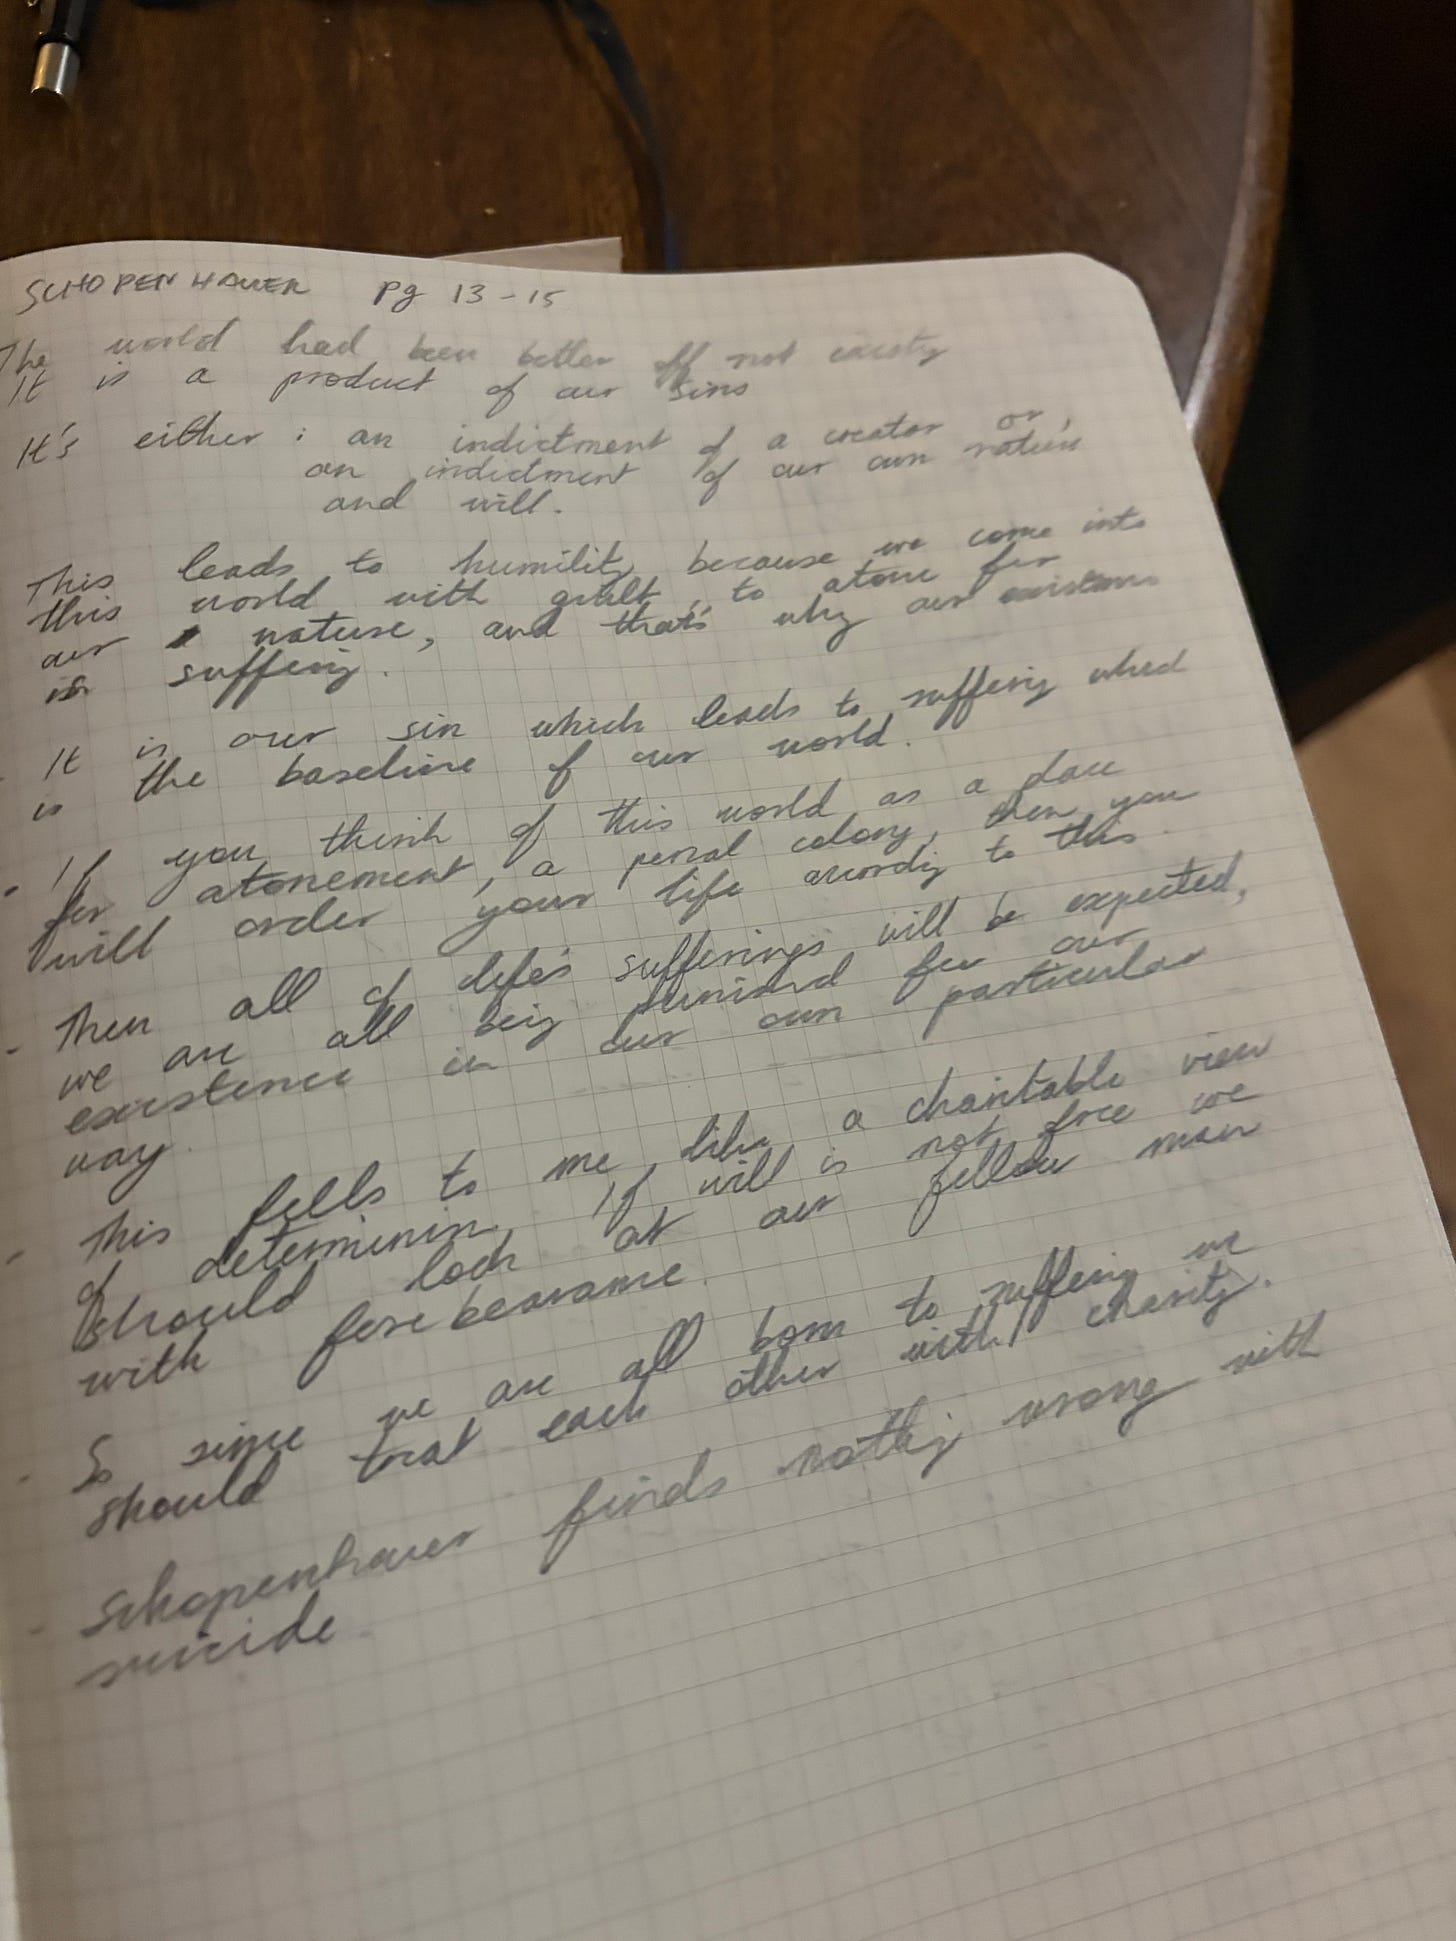 SCHOPENHAUER pg 13-15
The world had been better off not existing
It is a product of our sins
It's either: an indictment of a creator or,
an indictment of our own nature
and will.
This leads to humility because we come into
this world with guilt, to atone for
our nature, and that's why our existence
is suffering.
It is our sin which leads to suffering which
is the baseline of our world.
- If you think of this world as a place
for atonement, a penal colony, then you
will order your life according to this
- Then all of life's sufferings will be expected,
we are all being punished for our
existence in our own particular
way.
- This fells to me like a charitable view
of determinism. If will is not free we
should look at our fellow man
with forebearance.
- So since we are all born to suffering we
should treat each other with charity.
- Schopenhauer finds nothing wrong with
suicide.